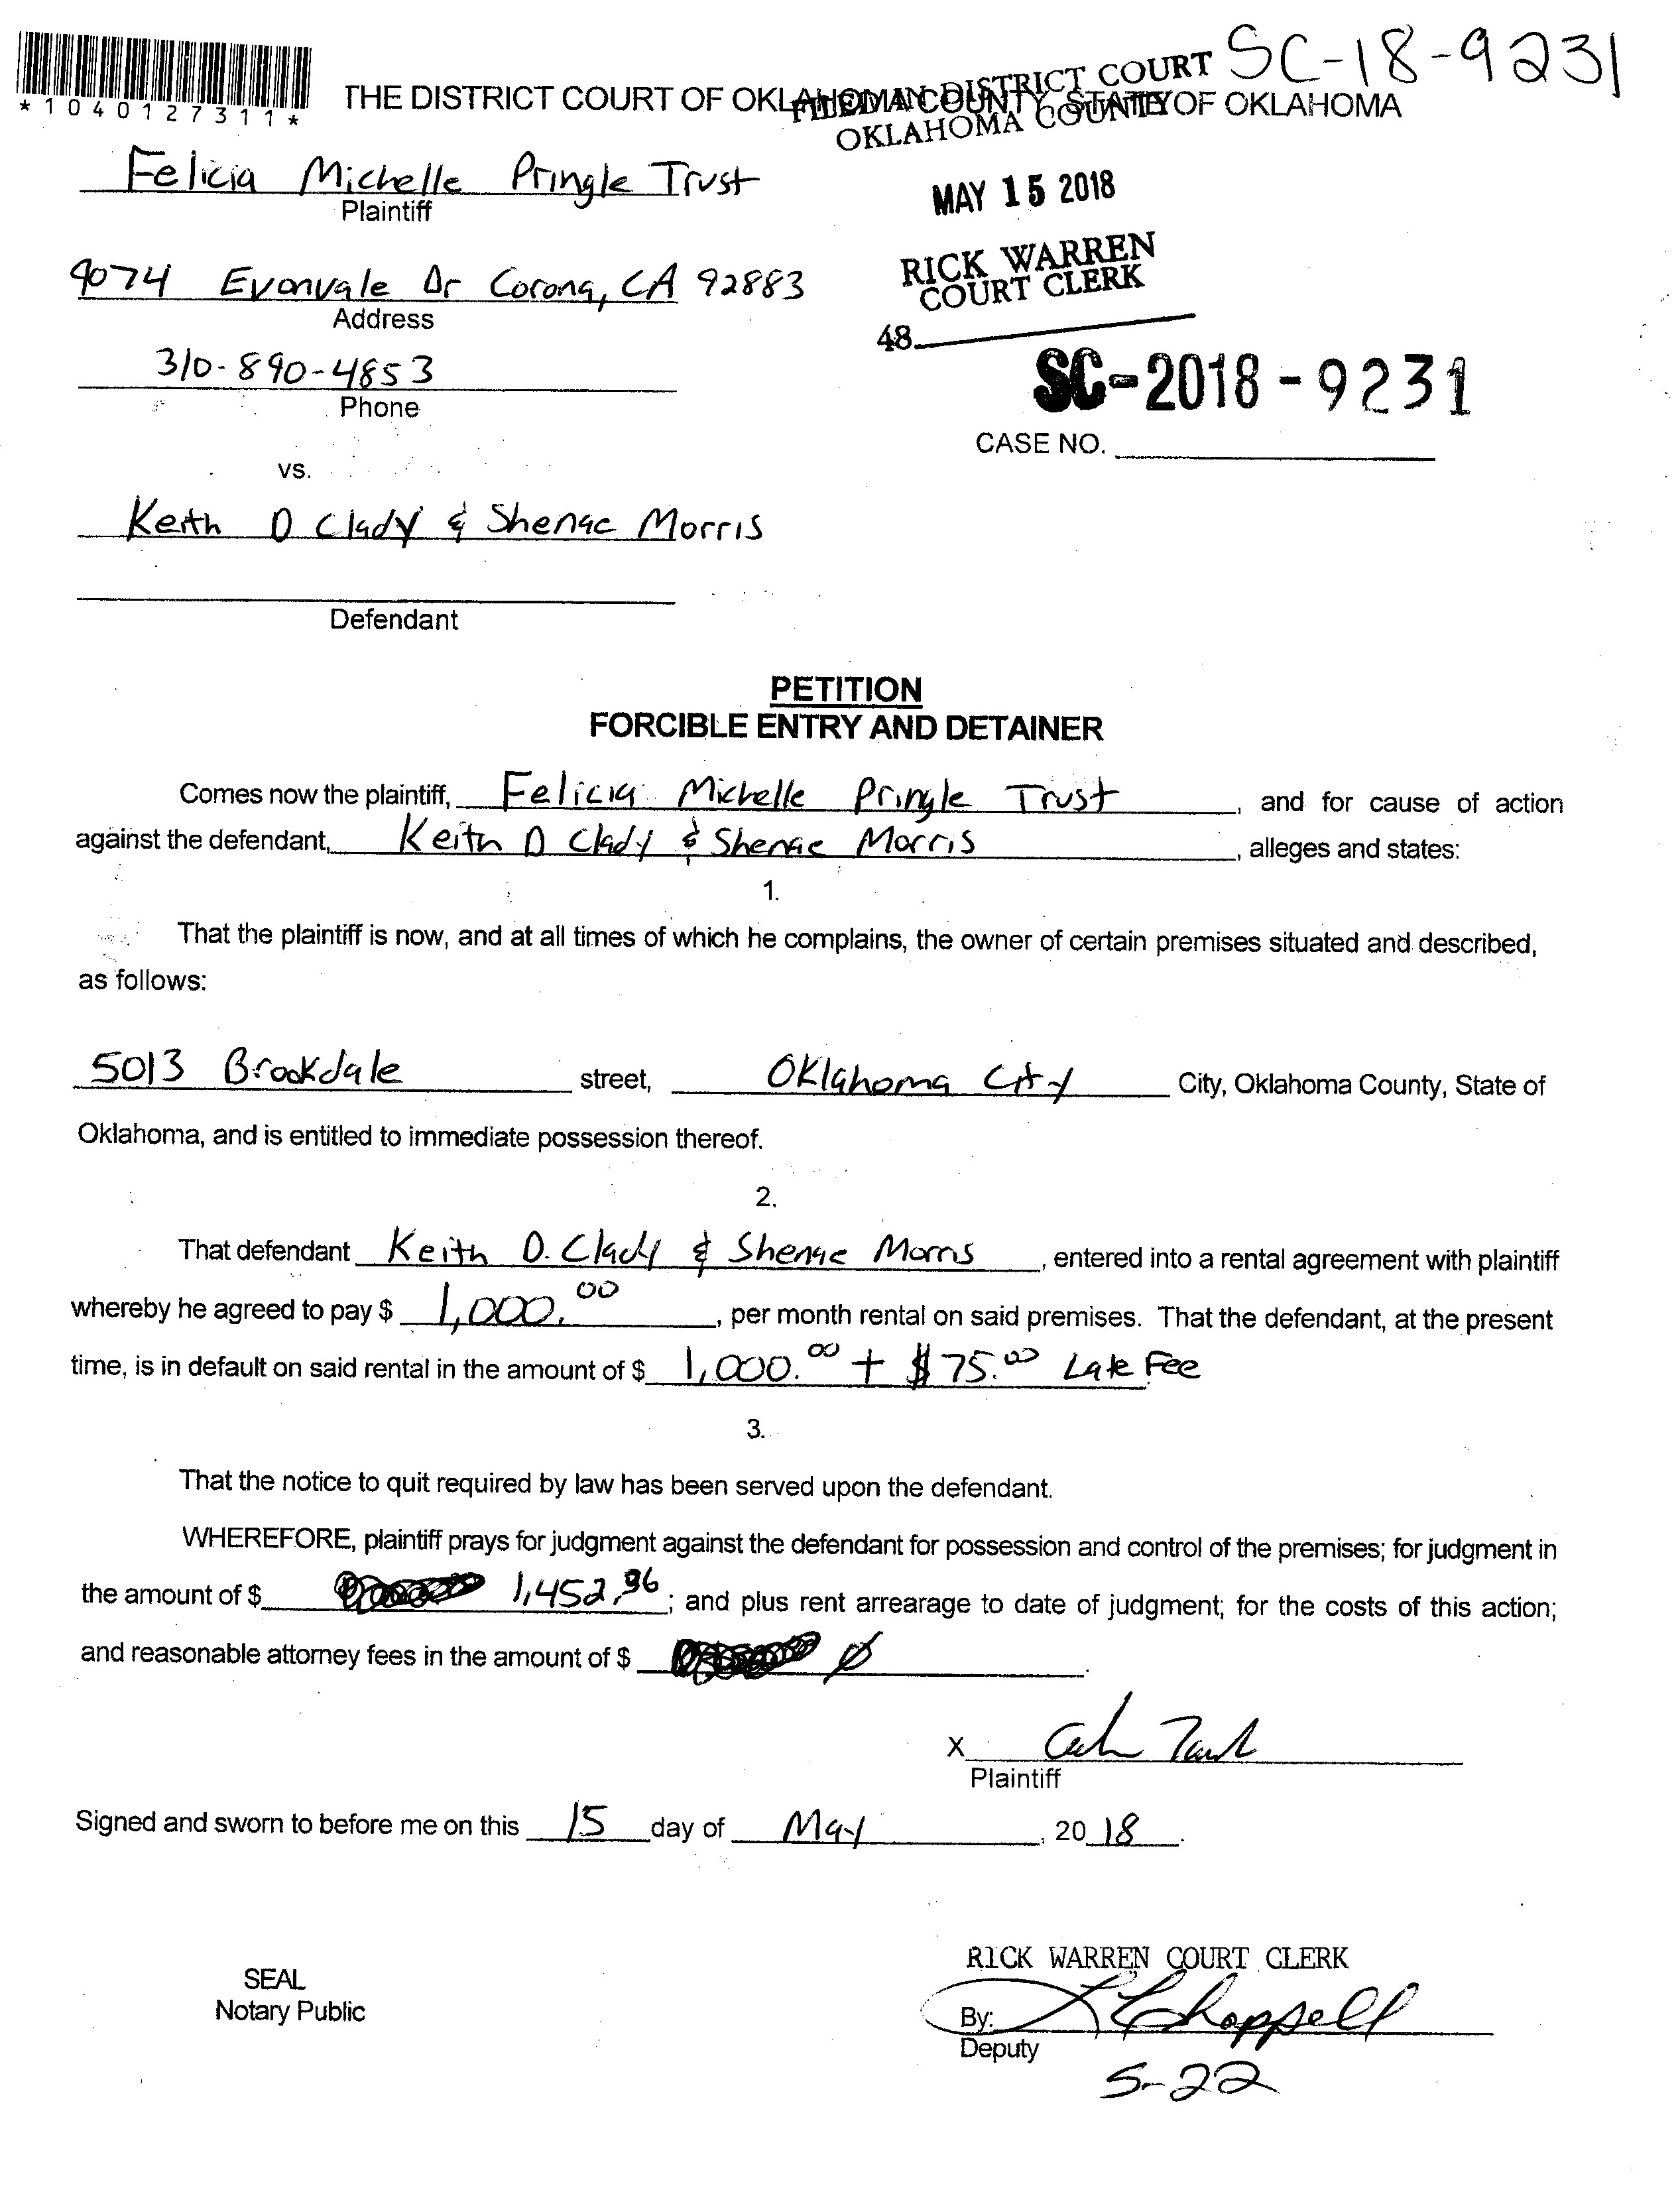 SC-18-9231
*1040127311*
THE DISTRICT COURT OF OKLAHOMA COUNTY, STATE OF OKLAHOMA
FILED IN DISTRICT COURT
OKLAHOMA COUNTY
Felicia Michelle Pringle Trust
Plaintiff
MAY 15 2018
9074 Evonvale Dr Corona, CA 92883
Address
RICK WARREN
COURT CLERK
48
310-890-4853
Phone
SC-2018-9231
CASE NO.
vs.
Keith D Clady & Shenae Morris
Defendant
PETITION
FORCIBLE ENTRY AND DETAINER
Comes now the plaintiff, Felicia Michelle Pringle Trust, and for cause of action
against the defendant, Keith D Clady & Shenae Morris, alleges and states:
1.
That the plaintiff is now, and at all times of which he complains, the owner of certain premises situated and described,
as follows:
5013 Brookdale street, Oklahoma City City, Oklahoma County, State of
Oklahoma, and is entitled to immediate possession thereof.
2.
That defendant Keith D. Clady & Shenae Morris, entered into a rental agreement with plaintiff
whereby he agreed to pay $ 1,000.00, per month rental on said premises. That the defendant, at the present
time, is in default on said rental in the amount of $ 1,000.00 + $75.00 Late Fee
3.
That the notice to quit required by law has been served upon the defendant.
WHEREFORE, plaintiff prays for judgment against the defendant for possession and control of the premises; for judgment in
the amount of $ 1,452.96; and plus rent arrearage to date of judgment; for the costs of this action;
and reasonable attorney fees in the amount of $ Ø.
X
Plaintiff
Signed and sworn to before me on this 15 day of May, 2018.
RICK WARREN COURT CLERK
SEAL
Notary Public
By: Chappell
Deputy
5-22